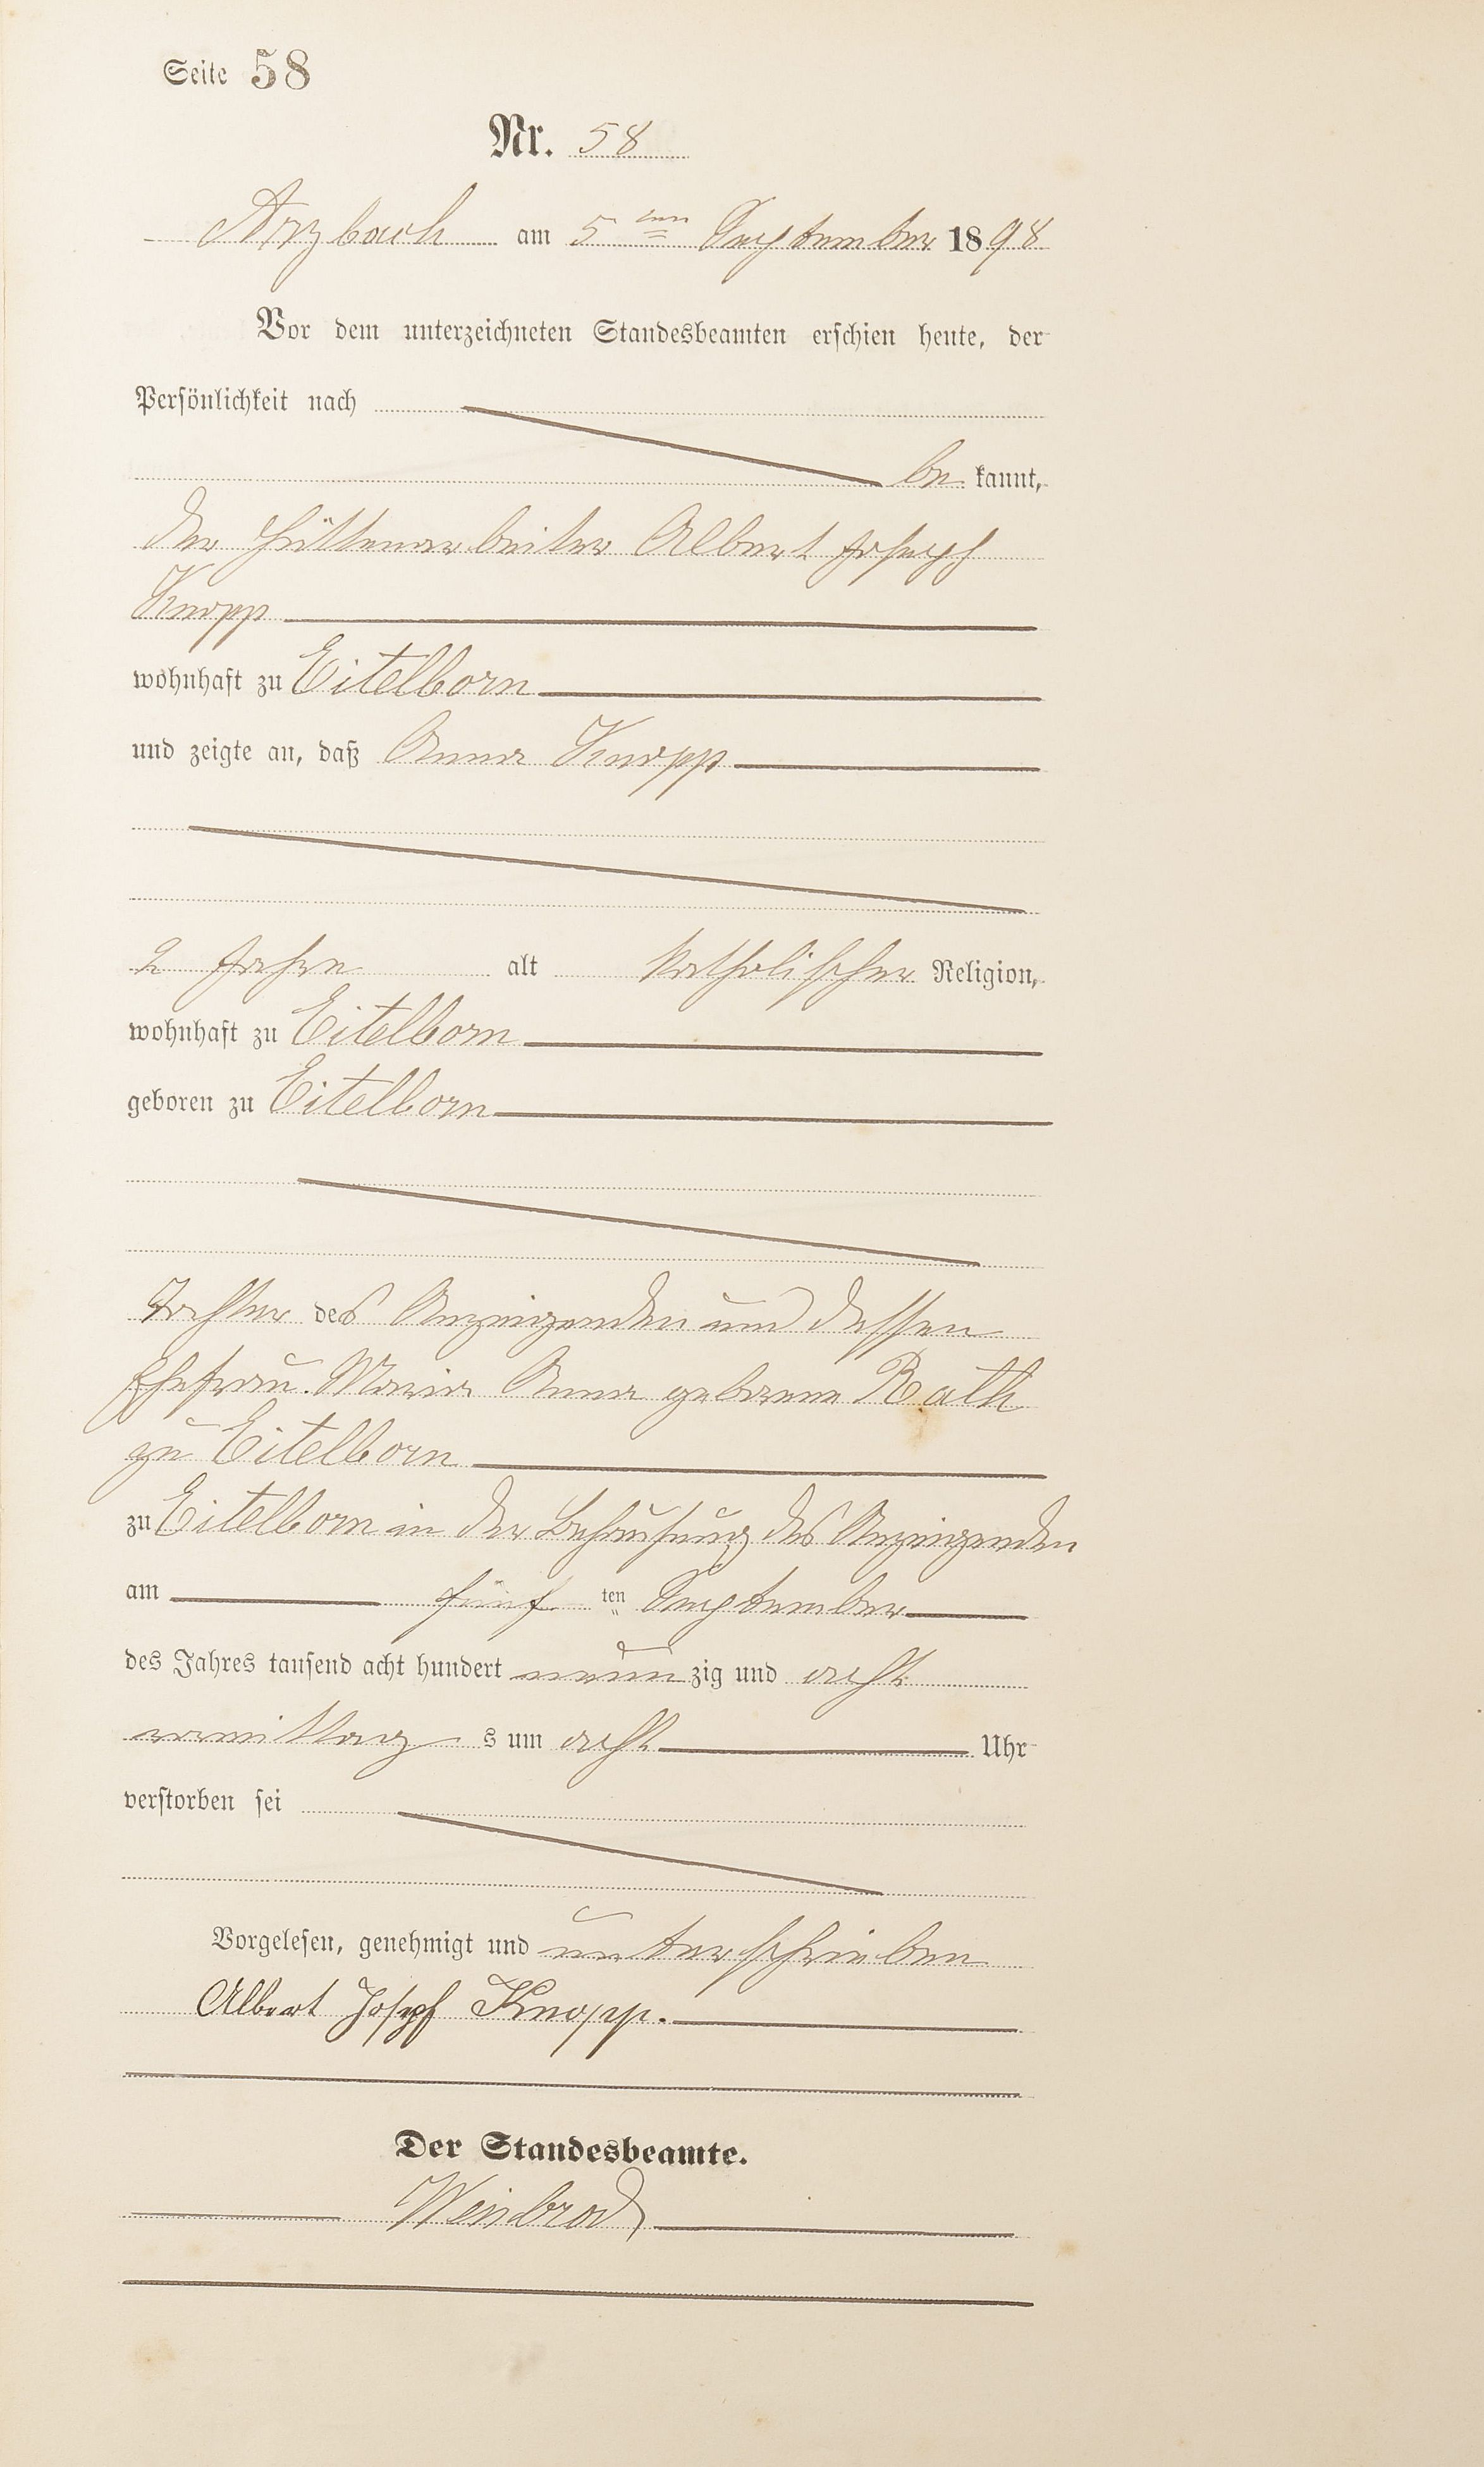 Seite 58
Nr. 58
Arzbach am 5 ten September 1898
Vor dem unterzeichneten Standesbeamten erschien heute, der
Persönlichkeit nach
be kannt,
der Hüttenarbeiter Albert Joseph
Knopp
wohnhaft zu Eitelborn
und zeigte an, daß Anna Knopp
2 Jahre alt katholischer Religion,
wohnhaft zu Eitelborn
geboren zu Eitelborn
Tochter des Anzeigenden und dessen
Ehefrau Maria Anna geborene Rath
zu Eitelborn
zu Eitelborn in der Behausung des Anzeigenden
am fünf ten September
des Jahres tausend acht hundert neun zig und acht
vormittag s um acht Uhr
verstorben sei
Vorgelesen, genehmigt und unterschrieben
Albert Josepf Knopp.
Der Standesbeamte.
Weinbrod